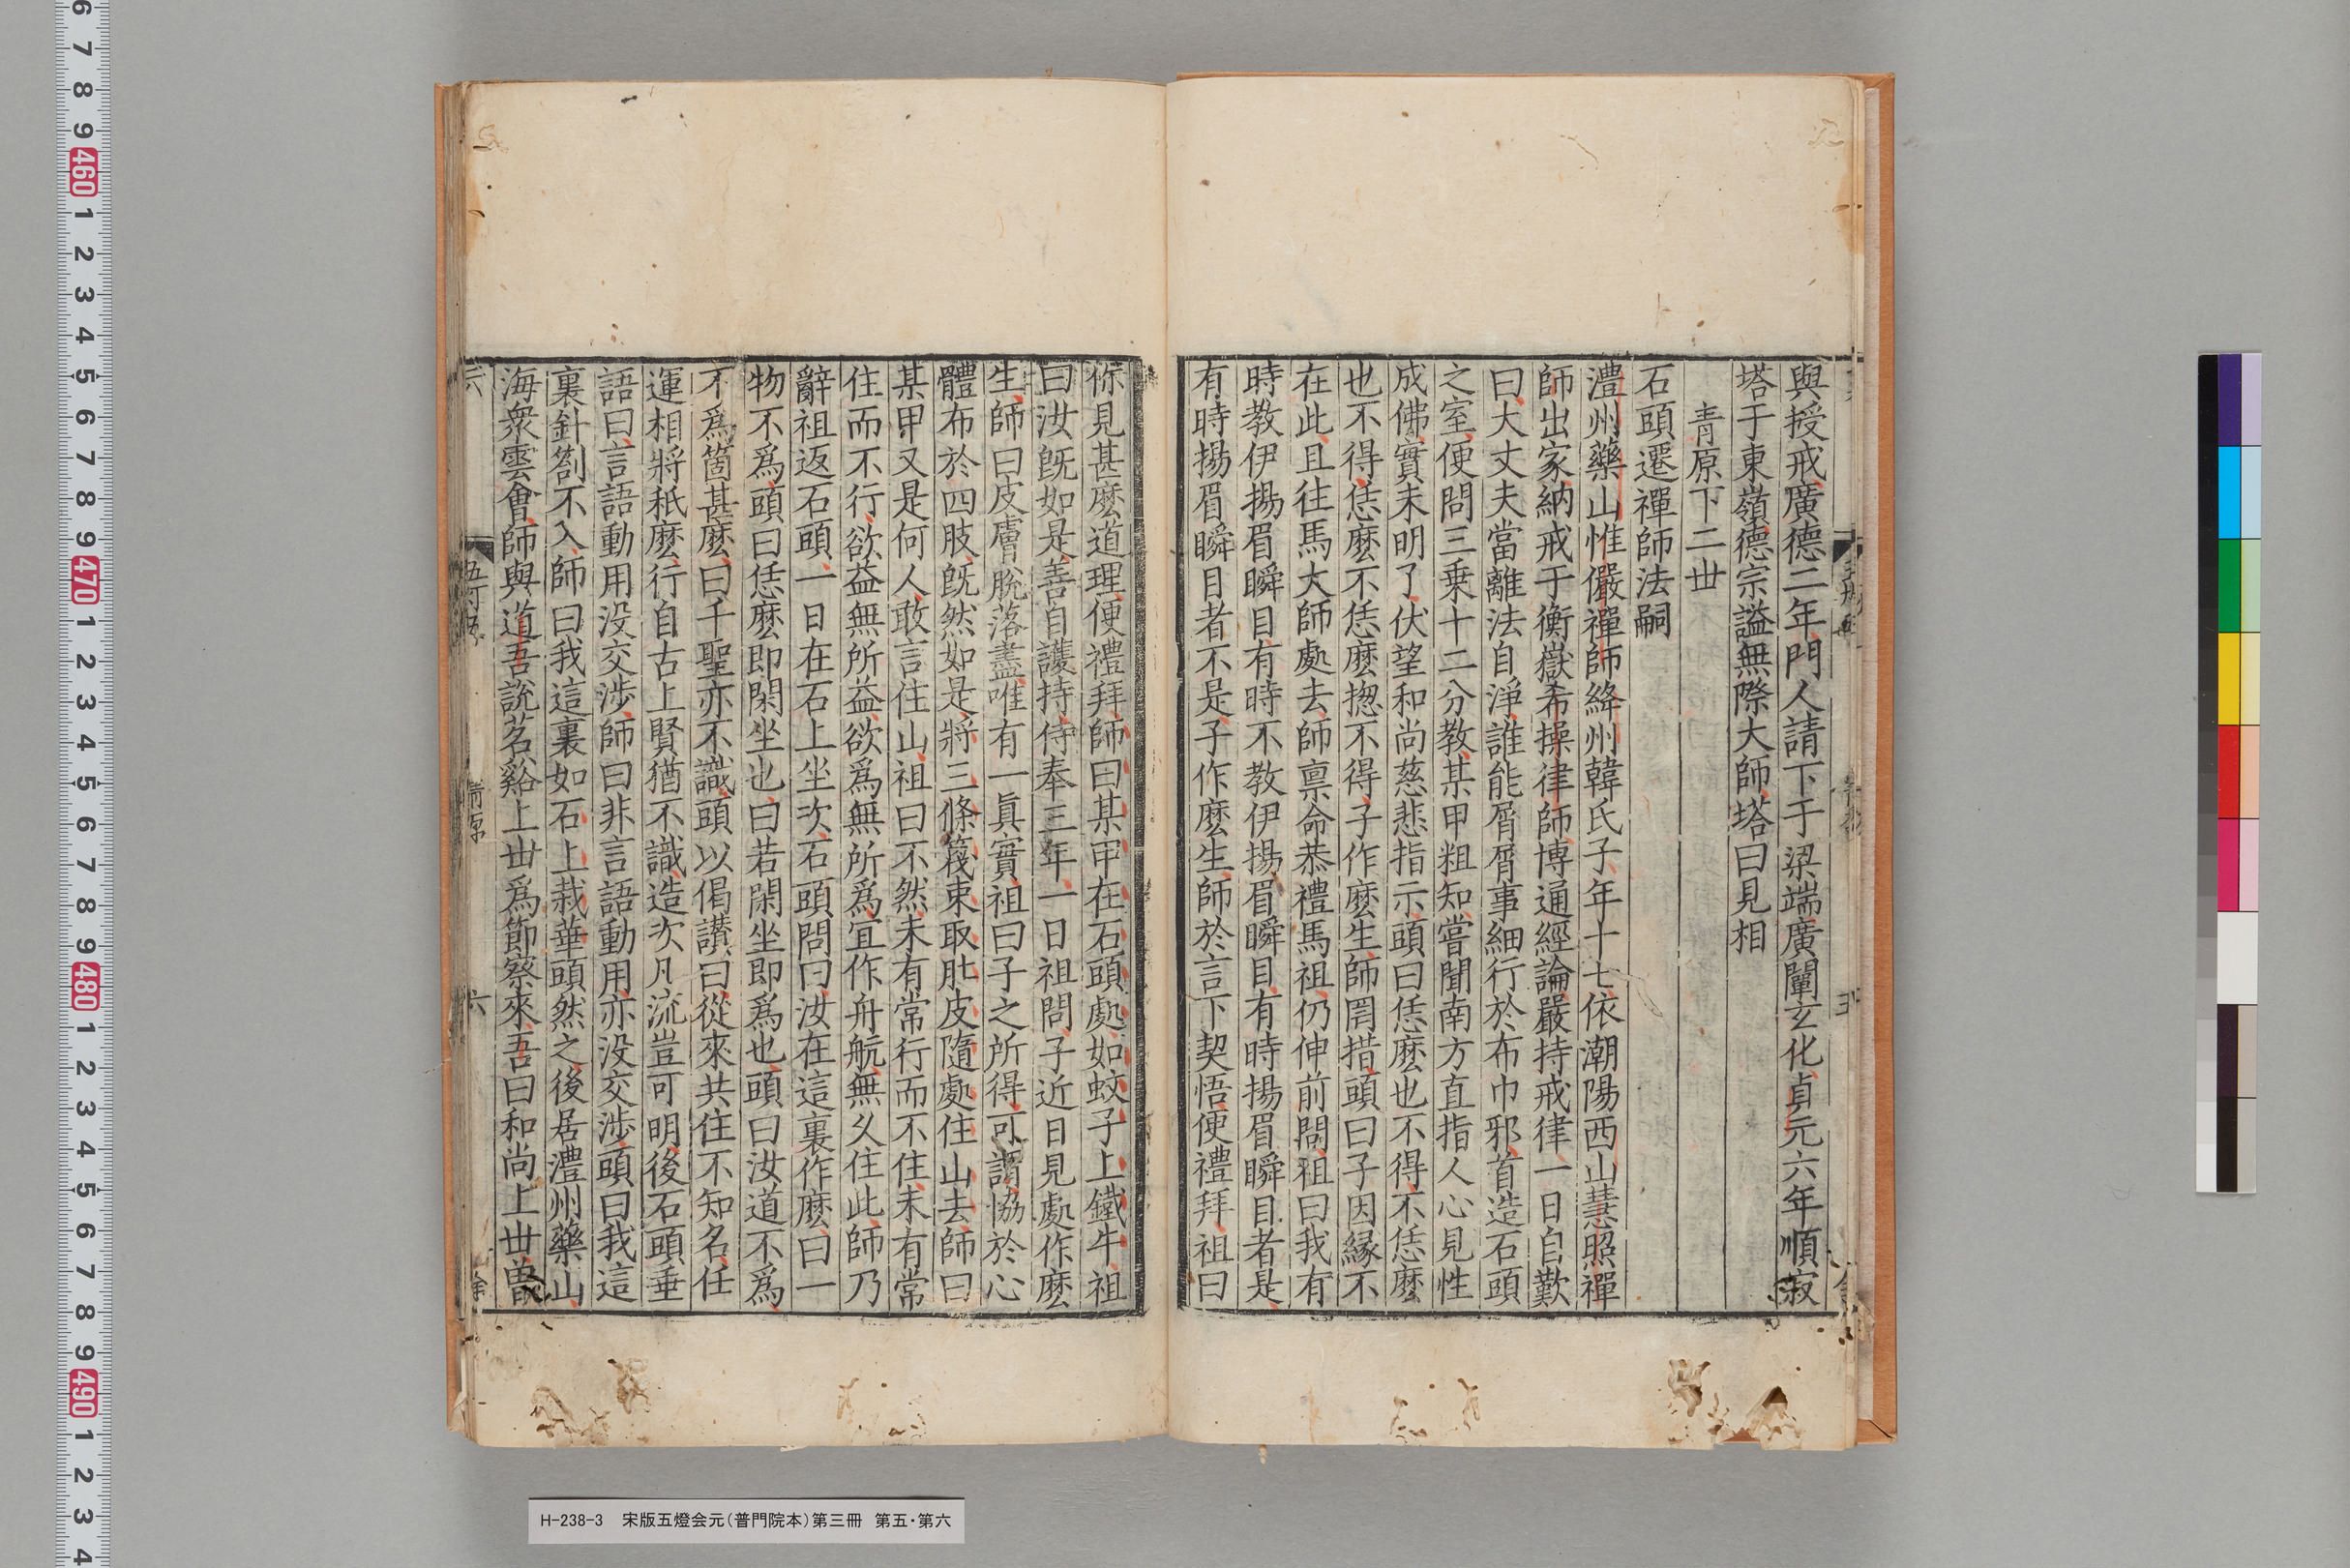 與授戒廣德二年門人請下于梁端廣闡玄化貞元六年順寂
塔于東嶺德宗謚無際大師塔曰見相
青原下二丗
石頭遷禪師法嗣
澧州藥山惟儼禪師絳州韓氏子年十七依潮陽西山慧照禪
師出家納戒于衡嶽希操律師博通經論嚴持戒律一日自歎
曰大丈夫當離法自淨誰能屑屑事細行於布巾邪首造石頭
之室便問三乗十二分教某甲粗知嘗聞南方直指人心見性
成佛實未明了伏望和尚慈悲指示頭曰恁麽也不得不恁麽
也不得恁麽不恁麽揔不得子作麽生師罔措頭曰子因縁不
在此且往馬大師處去師禀命恭禮馬祖仍伸前問祖曰我有
時教伊揚眉瞬目有時不教伊揚眉瞬目有時揚眉瞬目者是
有時揚眉瞬目者不是子作麽生師於言下契悟便禮拜祖曰
你見甚麽道理便禮拜師曰某甲在石頭處如蚊子上鐵牛祖
曰汝既如是善自護持侍奉三年一日祖問子近日見處作麽
生師曰皮膚脫落盡唯有一眞實祖曰子之所得可謂協於心
體布於四肢既然如是將三條篾束取肚皮隨處住山去師曰
某甲又是何人敢言住山祖曰不然未有常行而不住未有常
住而不行欲益無所益欲爲無所爲宜作舟航無久住此師乃
辭祖返石頭一日在石上坐次石頭問曰汝在這裏作麽曰一
物不爲頭曰恁麽即閑坐也曰若閑坐即爲也頭曰汝道不爲
不爲箇甚麽曰千聖亦不識頭以偈讃曰從來共住不知名任
運相將秖麽行自古上賢猶不識造次凡流豈可明後石頭垂
語曰言語動用没交涉師曰非言語動用亦没交涉頭曰我這
裏針劄不入師曰我這裏如石上栽華頭然之後居澧州藥山
海衆雲會師與道吾說茗谿上丗爲節察來吾曰和尚上丗曽
青原
六
H-238-3 宋版五燈会元(普門院本)第三冊 第五・第六